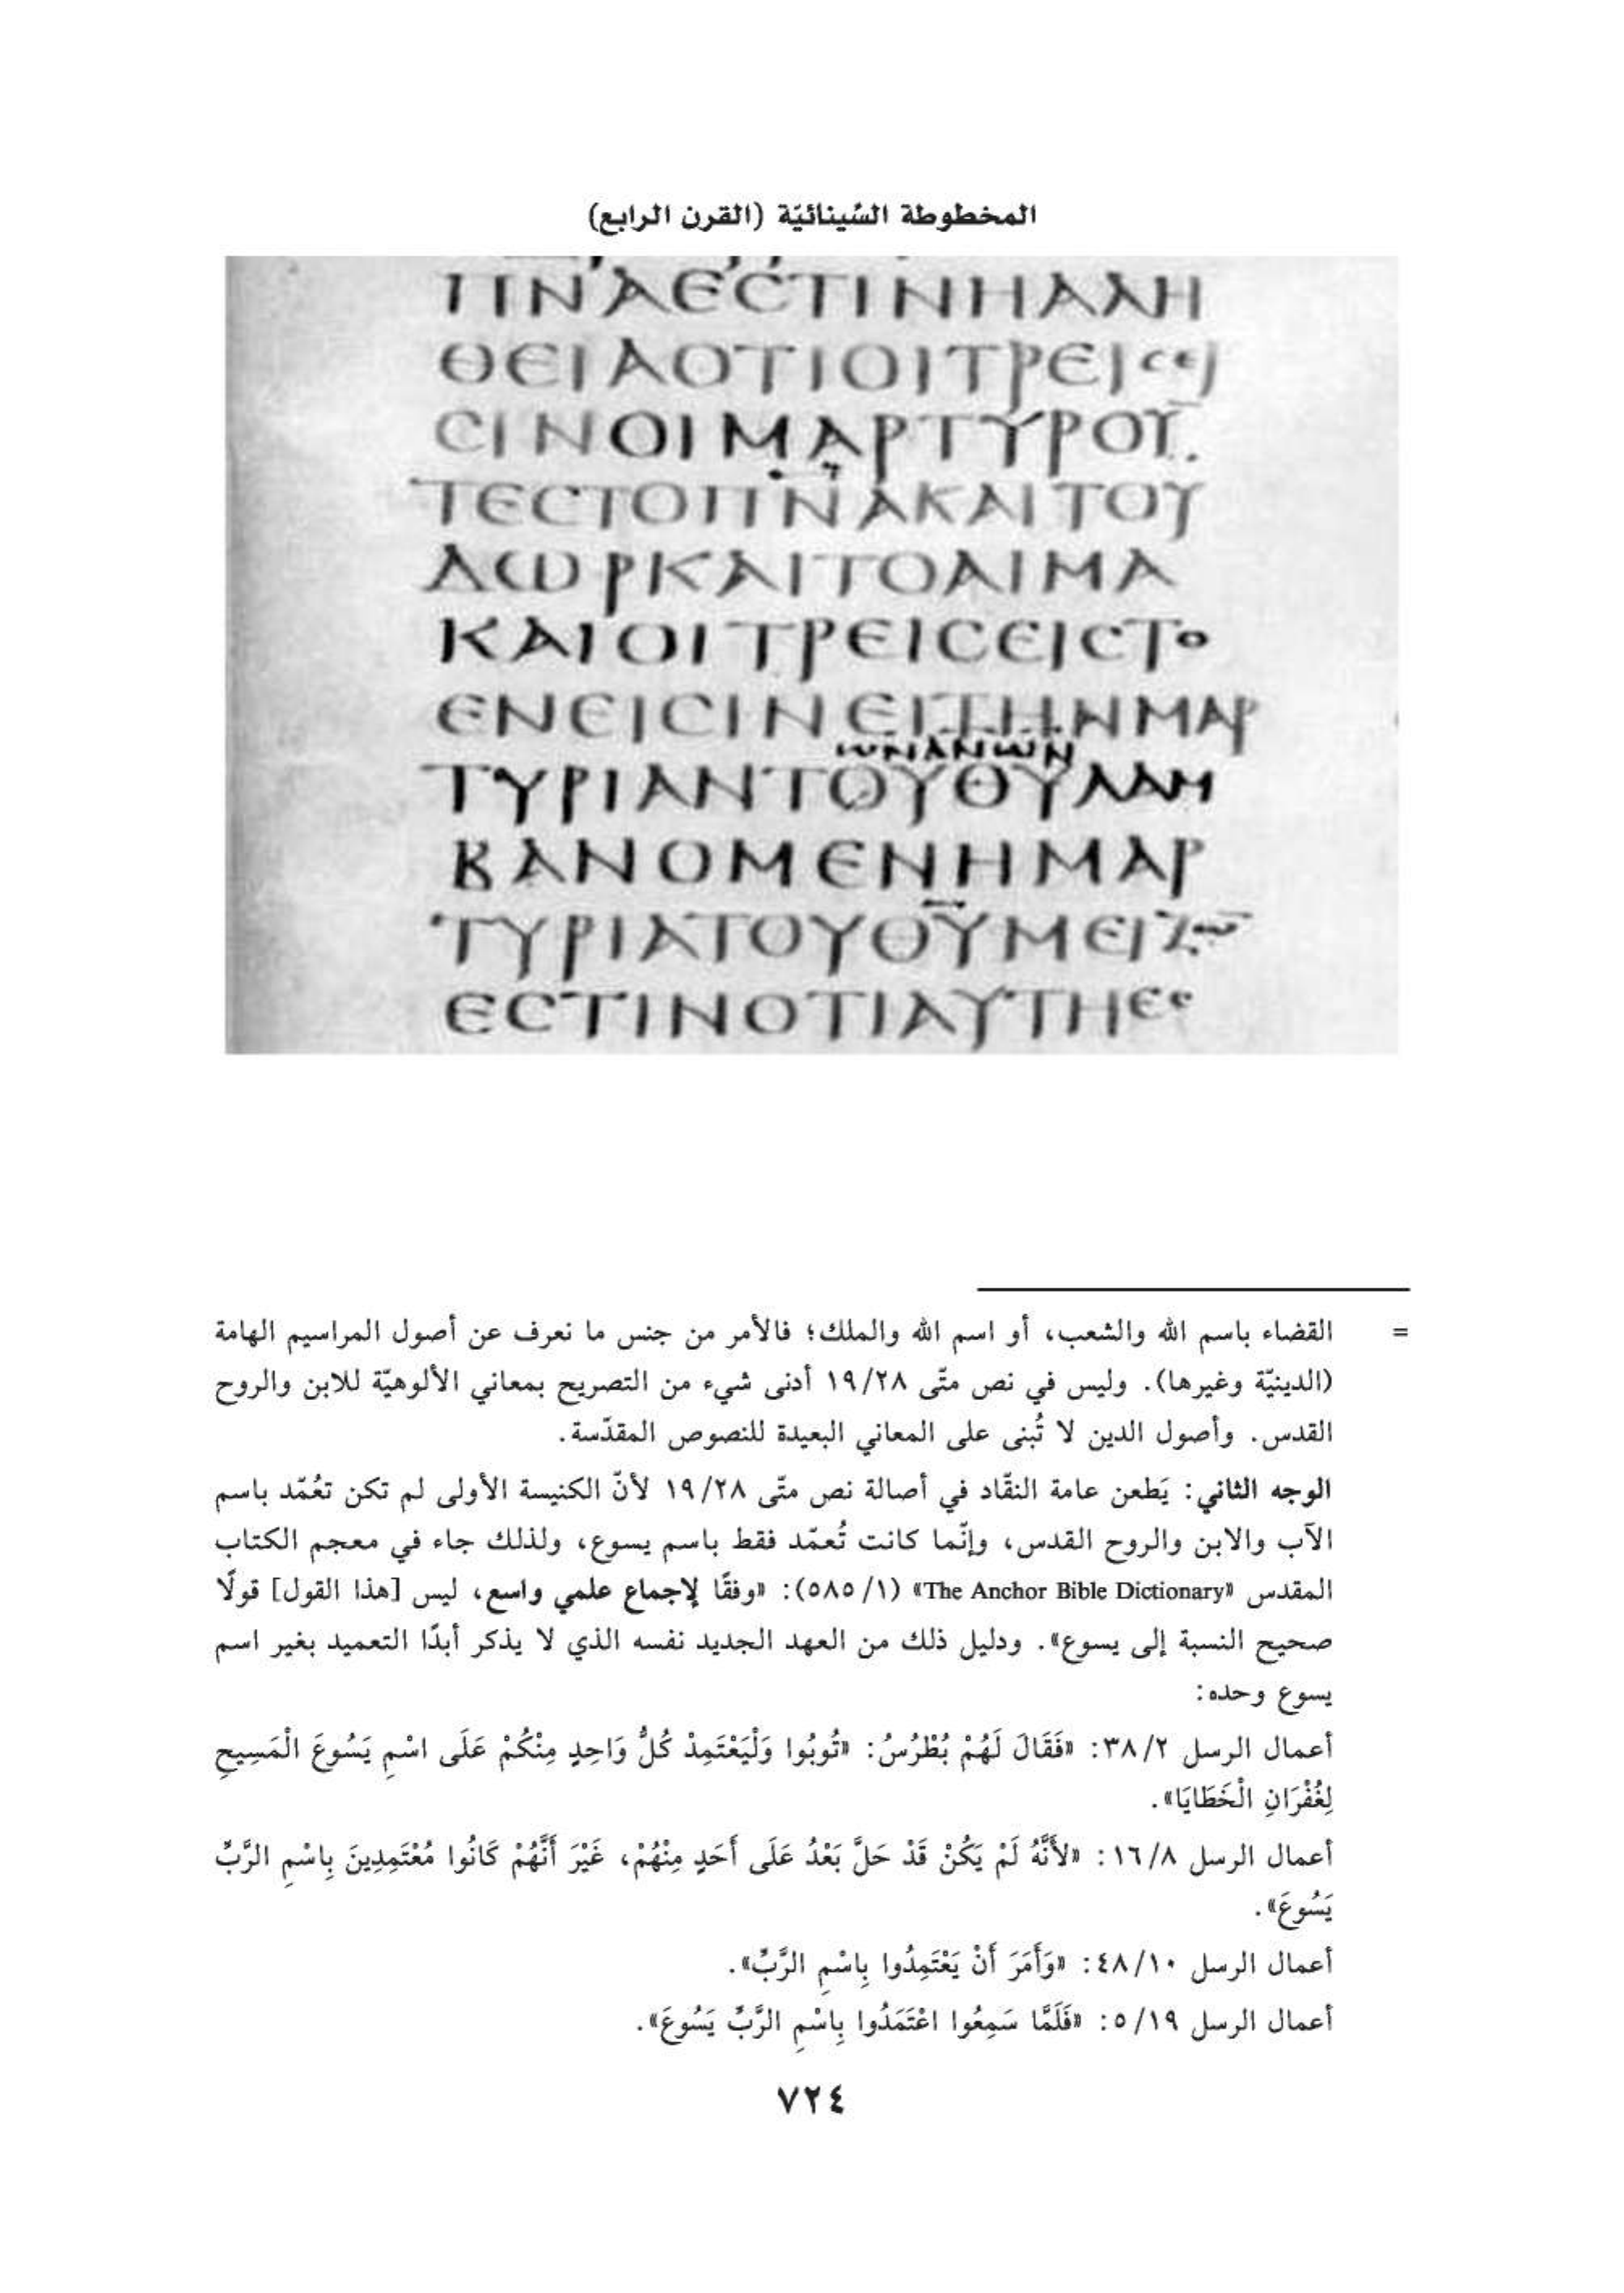 المخطوطة السِّينائيّة (القرن الرابع)
ΠΝΑΕCΤΙΝΗΑΛΗ
ΘΕΙΑΟΤΙΟΙΤΡΕΙCΕΙ
CΙΝΟΙΜΑΡΤΥΡΟΥ
ΤΕCΤΟΠΝΑΚΑΙΤΟΥ
ΔΩΡΚΑΙΤΟΑΙΜΑ
ΚΑΙΟΙΤΡΕΙCΕΙCΤΟ
ΕΝΕΙCΙΝΕΙΤΗΝΜΑΡ
ΤΥΡΙΑΝΤΟΥΘΥΛΑΜ
ΒΑΝΟΜΕΝΗΜΑΡ
ΤΥΡΙΑΤΟΥΘΥΜΕΙΖω
ΕCΤΙΝΟΤΙΑΥΤΗΕC
= القضاء باسم الله والشعب، أو اسم الله والملك؛ فالأمر من جنس ما نعرف عن أصول المراسيم الهامة
(الدينيّة وغيرها). وليس في نص متّى ١٩/٢٨ أدنى شيء من التصريح بمعاني الألوهيّة للابن والروح
القدس. وأصول الدين لا تُبنى على المعاني البعيدة للنصوص المقدّسة.
الوجه الثاني: يَطعن عامة النقّاد في أصالة نص متّى ١٩/٢٨ لأنّ الكنيسة الأولى لم تكن تعُمّد باسم
الآب والابن والروح القدس، وإنّما كانت تُعمّد فقط باسم يسوع، ولذلك جاء في معجم الكتاب
المقدس «The Anchor Bible Dictionary» (١/ ٥٨٥): «وفقًا لإجماع علمي واسع، ليس [هذا القول] قولًا
صحيح النسبة إلى يسوع». ودليل ذلك من العهد الجديد نفسه الذي لا يذكر أبدًا التعميد بغير اسم
يسوع وحده:
أعمال الرسل ٣٨/٢: «فَقَالَ لَهُمْ بُطْرُسُ: «تُوبُوا وَلْيَعْتَمِدْ كُلُّ وَاحِدٍ مِنْكُمْ عَلَى اسْمِ يَسُوعَ الْمَسِيحِ
لِغُفْرَانِ الْخَطَايَا».
أعمال الرسل ١٦/٨: «لأَنَّهُ لَمْ يَكُنْ قَدْ حَلَّ بَعْدُ عَلَى أَحَدٍ مِنْهُمْ، غَيْرَ أَنَّهُمْ كَانُوا مُعْتَمِدِينَ بِاسْمِ الرَّبِّ
يَسُوعَ».
أعمال الرسل ٤٨/١٠: «وَأَمَرَ أَنْ يَعْتَمِدُوا بِاسْمِ الرَّبِّ».
أعمال الرسل ٥/١٩: «فَلَمَّا سَمِعُوا اعْتَمَدُوا بِاسْمِ الرَّبِّ يَسُوعَ».
٧٢٤